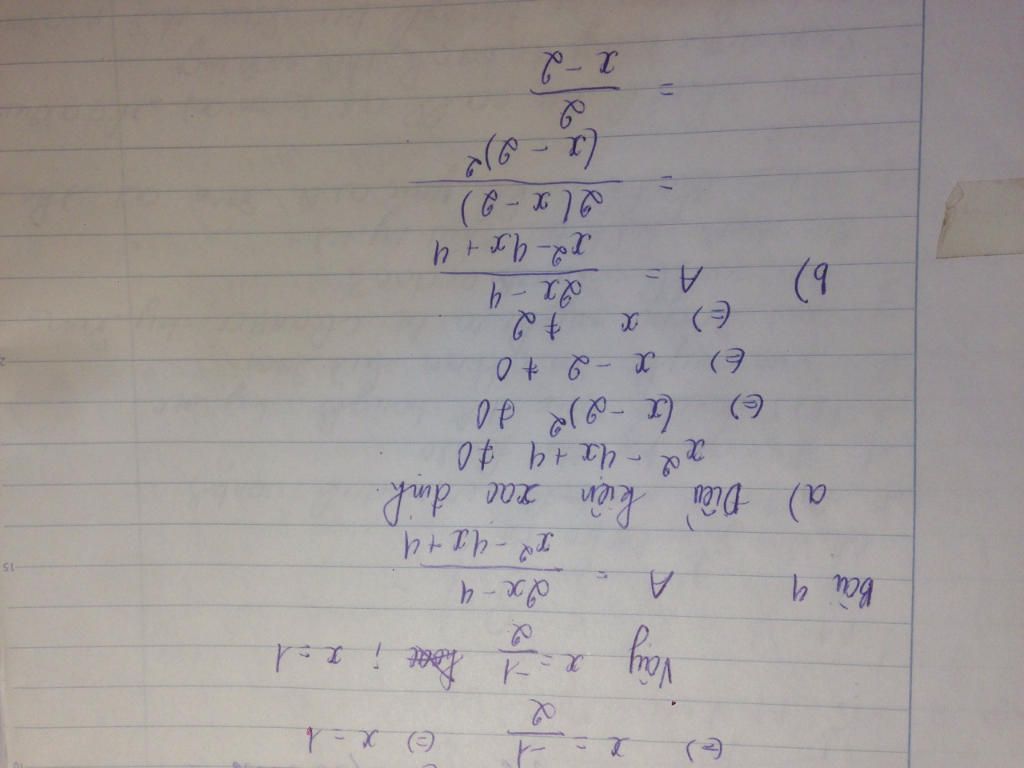 (=) x = -1/2 (=) x = 1
Vậy x = -1/2 ; x = 1
Bài 4 A = 2x - 4 / x² - 4x + 4
a) Điều kiện xác định
x² - 4x + 4 ≠ 0
(=) (x - 2)² ≠ 0
(=) x - 2 ≠ 0
(=) x ≠ 2
b) A = 2x - 4 / x² - 4x + 4
= 2(x - 2) / (x - 2)²
= 2 / x - 2